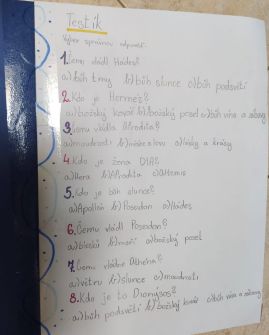 Testík
Vyber správnou odpověď.
1. Čemu vládl Hádes?
a) bůh tmy b) bůh slunce c) bůh podsvětí
2. Kdo je Hermes?
a) božský kovář b) božský posel c) bůh vína a zábavy
3. Čemu vládla Afrodita?
a) moudrosti b) c) lásky a krásy
4. Kdo je žena DIA?
a) Hera b) Afrodita c) Artemis
5. Kdo je bůh slunce?
a) Apollón b) Poseidon c) Hádes
6. Čemu vládl Poseidon?
a) b) moří c) božský posel
7. Čemu vládne Athéna?
a) větru b) slunce c) moudrosti
8. Kdo je to Dionýsos?
a) bůh podsvětí b) božský kovář c) bůh vína a zábavy